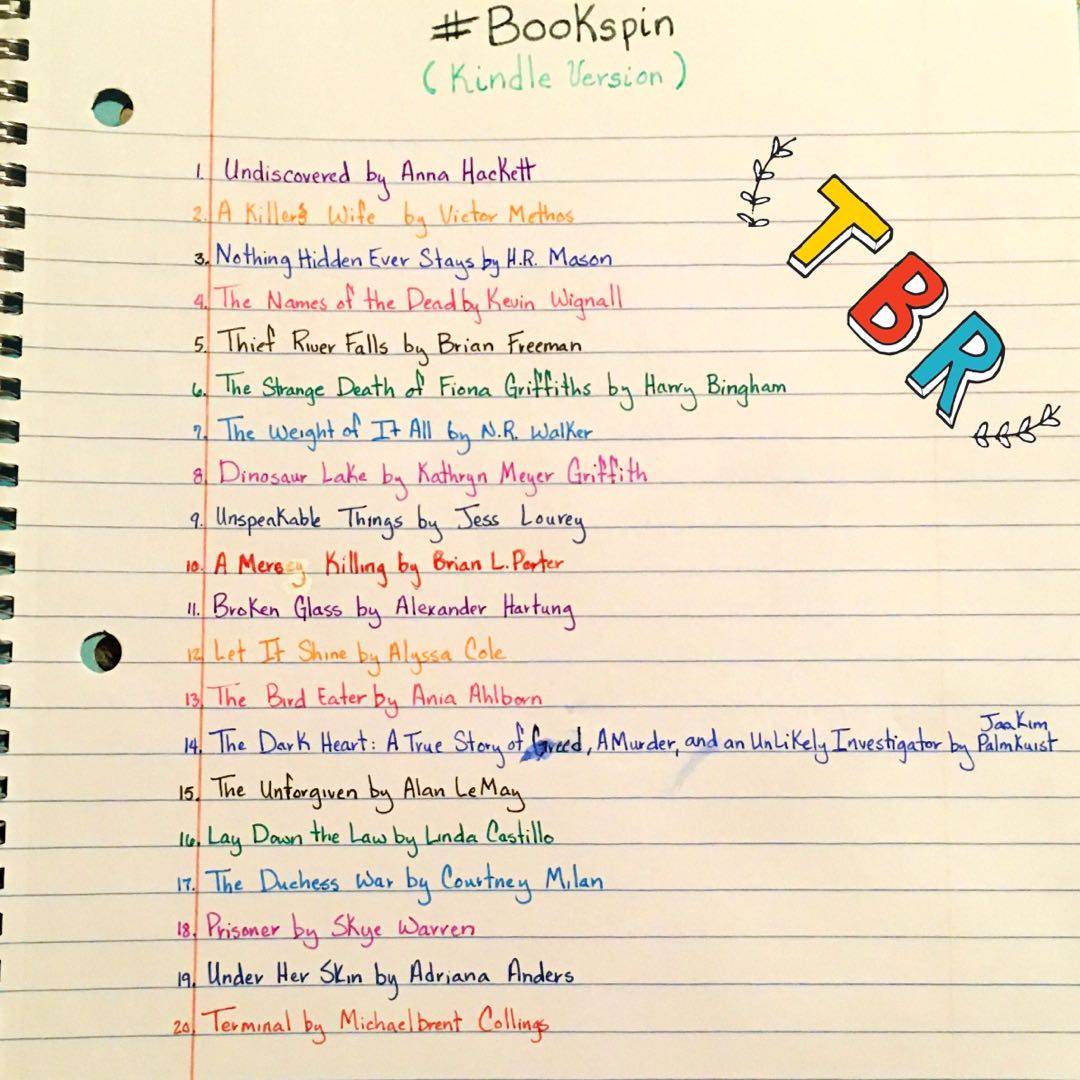 #Bookspin
(Kindle Version)
1. Undiscovered by Anna Hackett
2. A Killer's Wife by Victor Methos
3. Nothing Hidden Ever Stays by H.R. Mason
4. The Names of the Dead by Kevin Wignall
5. Thief River Falls by Brian Freeman
6. The Strange Death of Fiona Griffiths by Harry Bingham
7. The Weight of It All by N.R. Walker
8. Dinosaur Lake by Kathryn Meyer Griffith
9. Unspeakable Things by Jess Lourey
10. A Mercy Killing by Brian L. Porter
11. Broken Glass by Alexander Hartung
12. Let It Shine by Alyssa Cole
13. The Bird Eater by Ania Ahlborn
14. The Dark Heart: A True Story of Greed, A Murder, and an Unlikely Investigator by Jaakim Palmkuist
15. The Unforgiven by Alan LeMay
16. Lay Down the Law by Linda Castillo
17. The Duchess War by Courtney Milan
18. Prisoner by Skye Warren
19. Under Her Skin by Adriana Anders
20. Terminal by Michaelbrent Collings
TBR